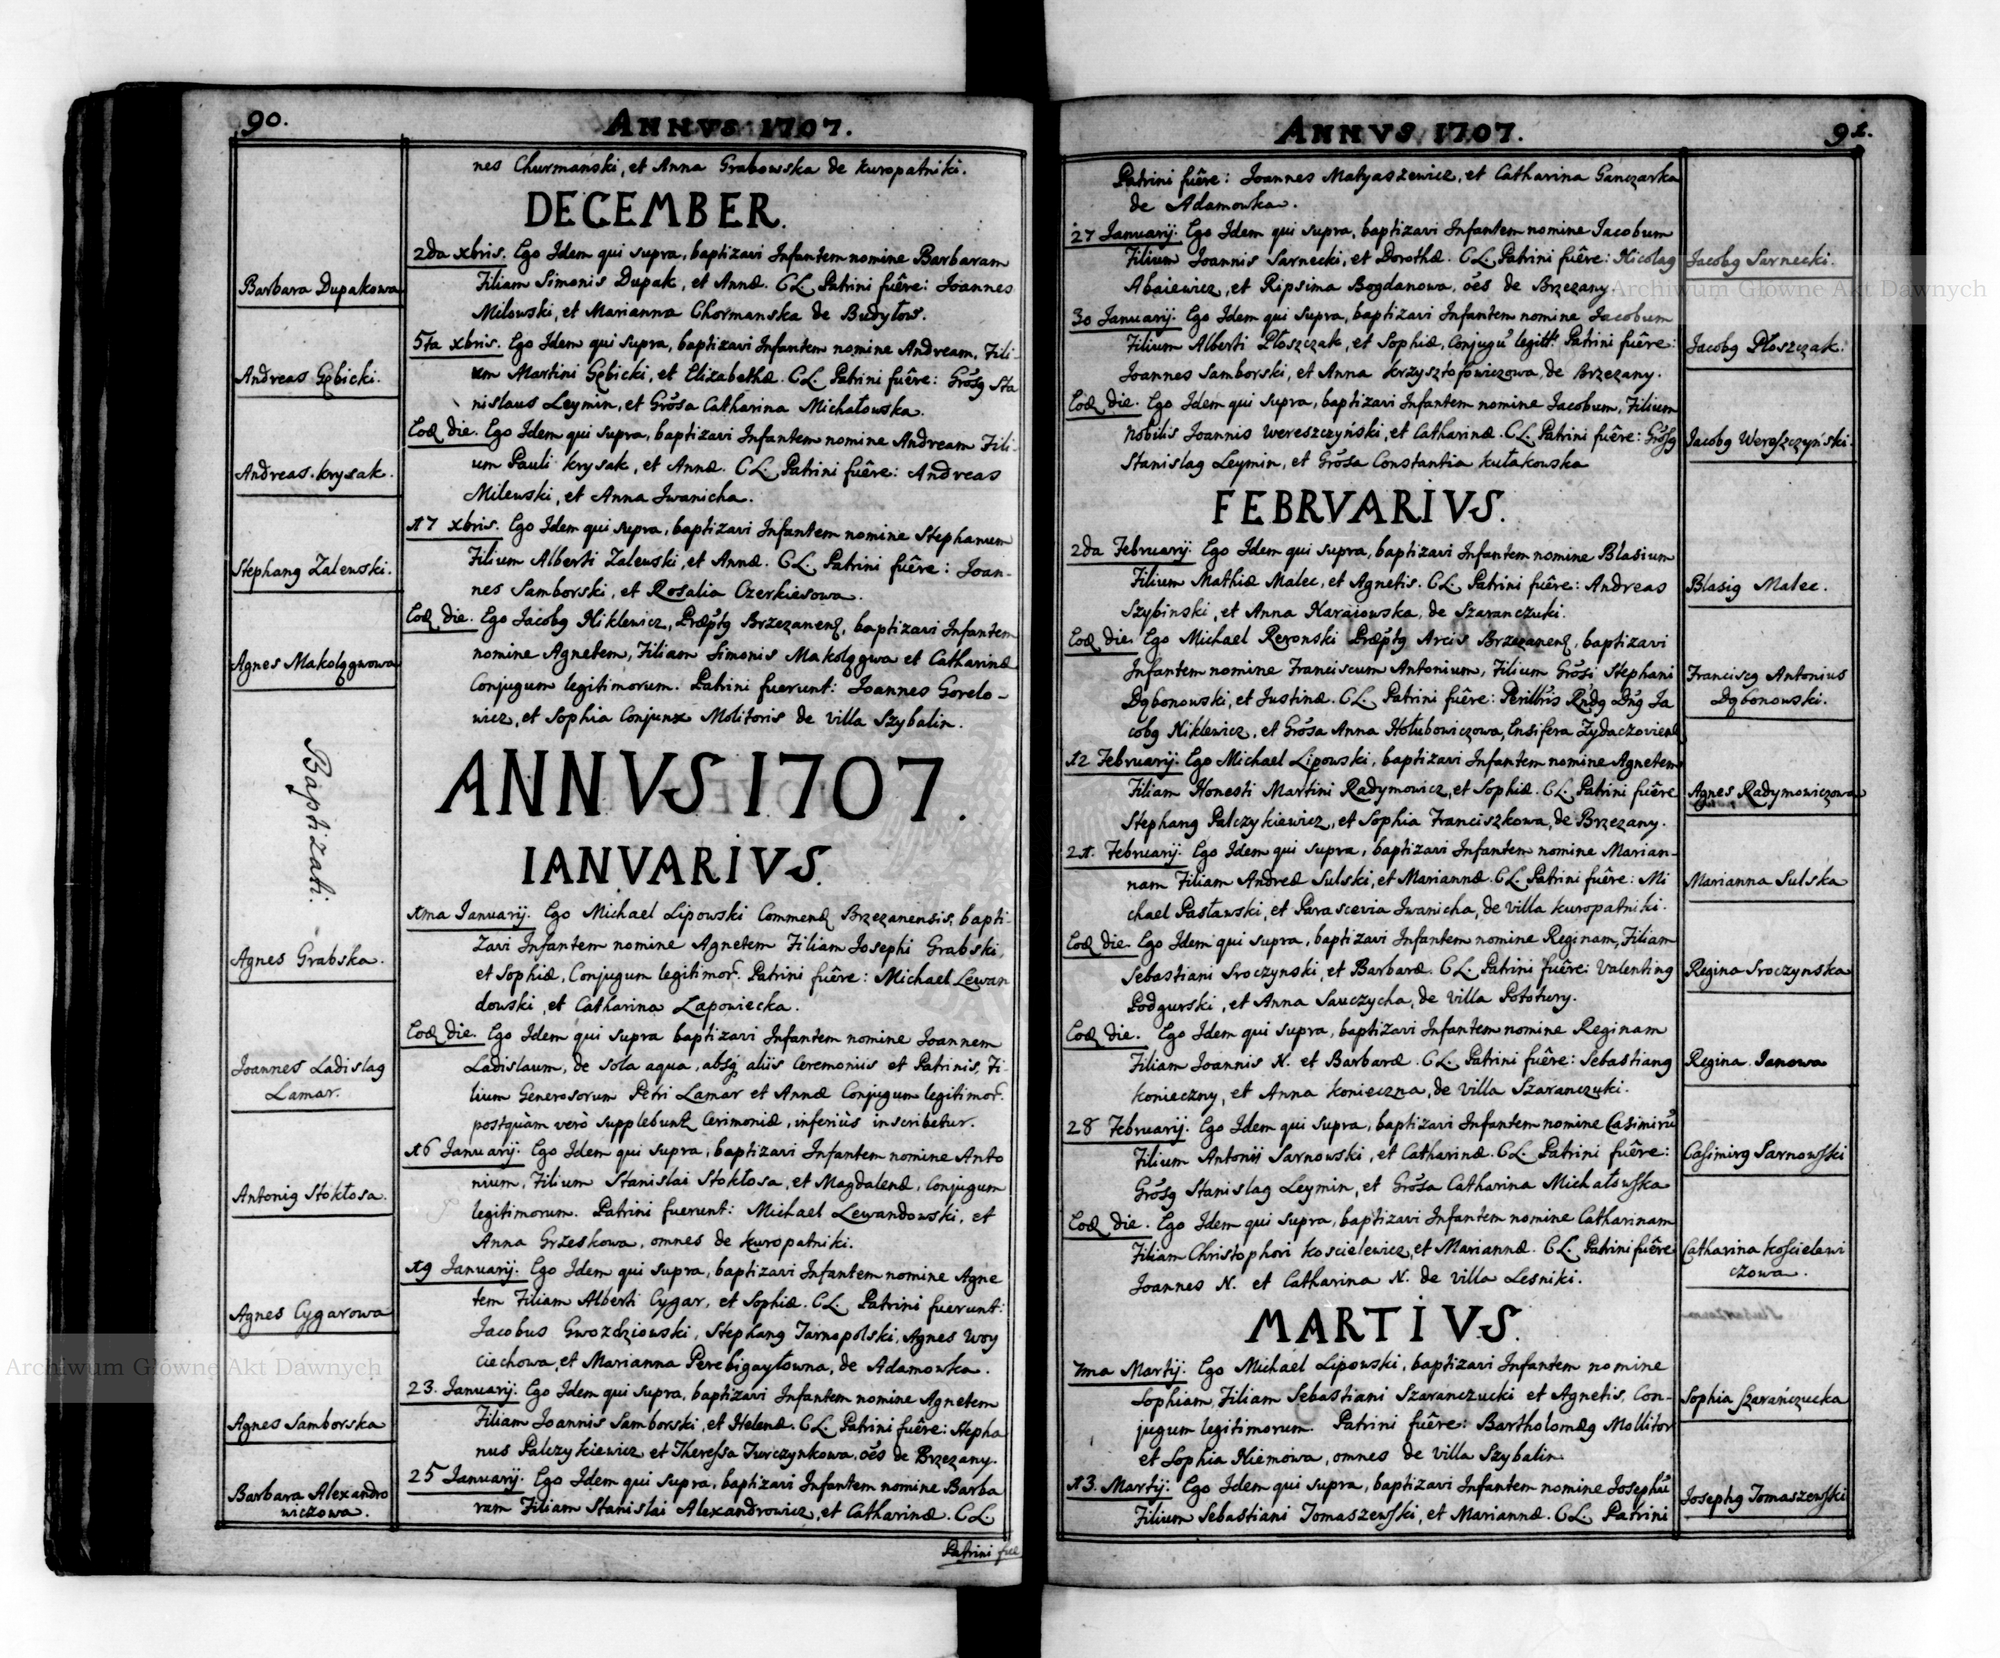 90.
ANNVS 1707.
nes Churmański, et Anna Grabowska de Kuropatniki.
DECEMBER.
2da xbris. Ego Idem qui supra, baptizavi Infantem nomine Barbaram
Barbara Dupakowa
Filiam Simonis Dupak, et Annæ. CL. Patrini fuêre: Joannes
Milowski, et Marianna Chormanska de Budyłow.
5ta xbris. Ego Idem qui supra, baptizavi Infantem nomine Andream, Fili-
Andreas Gębicki.
um Martini Gębicki, et Elizabethæ. CL. Patrini fuêre: Grõsg Sta
nislaus Leymin, et Grõsa Catharina Michałowska.
Eod die. Ego Idem qui supra, baptizavi Infantem nomine Andream Fili-
Andreas Krysak.
um Pauli Krysak, et Annæ. CL. Patrini fuêre: Andreas
Milewski, et Anna Iwanicha.
17 xbris. Ego Idem qui supra, baptizavi Infantem nomine Stephanum
Stephang Zalewski.
Filium Alberti Zalewski, et Annæ. CL. Patrini fuêre: Joan-
nes Samborski, et Rosalia Ozerkiesowa.
Eod die. Ego Jacobg Niklewicz, Præptg Brzezanen, baptizavi Infantem
Agnes Makolągwowa
nomine Agnetem, Filiam Simonis Makolągwa et Catharinæ
Conjugum legitimorum. Patrini fuerunt: Joannes Gorelo-
wicz, et Sophia Conjunx Molitoris de villa Szybalin.
Baptizati.
ANNVS 1707.
IANVARIVS.
1ma Ianuarij. Ego Michael Lipowski Commend Brzezanensis, bapti-
Agnes Grabska.
zavi Infantem nomine Agnetem Filiam Josephi Grabski,
et Sophiæ, Conjugum legitimor. Patrini fuêre: Michael Lewan
dowski, et Catharina Łapowiecka.
Eod die. Ego Idem qui supra baptizavi Infantem nomine Joannem
Joannes Ladislag
Lamar.
Ladislaum, de sola aqua, absq aliis Ceremoniis et Patrinis, Fi-
lium Generosorum Petri Lamar et Annæ Conjugum legitimor.
postquàm verò supplebunt Cerimoniæ, inferiùs inscribetur.
16 Januarij. Ego Idem qui supra, baptizavi Infantem nomine Anto
Antonig Stokłosa.
nium, Filium Stanislai Stokłosa, et Magdalenæ, Conjugum
legitimorum. Patrini fuerunt: Michael Lewandowski, et
Anna Grzeskowa, omnes de Kuropatniki.
19 Ianuarij. Ego Idem qui supra, baptizavi Infantem nomine Agne
Agnes Cygarowa
tem Filiam Alberti Cygar, et Sophiæ. CL. Patrini fuerunt:
Jacobus Gwozdziowski, Stephang Tarnopolski, Agnes Woy
ciechowa, et Marianna Perebigayłowna, de Adamowka.
23. Ianuarij. Ego Idem qui supra, baptizavi Infantem nomine Agnetem
Agnes Samborska
Filiam Joannis Samborski, et Helenæ. CL. Patrini fuêre: Stepha
nus Palczykiewicz et Theressa Turczynkowa, oẽs de Brzezany.
25 Ianuarij. Ego Idem qui supra, baptizavi Infantem nomine Barba
Barbara Alexandro
wiczowa.
ram Filiam Stanislai Alexandrowicz, et Catharinæ. CL.
Patrini fuê
ANNVS 1707.
91.
Patrini fuêre: Joannes Matyaszewicz, et Catharina Ganczarka
de Adamowka.
27 Ianuarij. Ego Idem qui supra, baptizavi Infantem nomine Iacobum
Jacobg Sarnecki.
Filium Joannis Sarnecki, et Dorothæ. CL. Patrini fuêre: Nicolag
Abaiewicz, et Ripsima Bogdanowa, oẽs de Brzezany.
30 Ianuarij. Ego Idem qui supra, baptizavi Infantem nomine Iacobum
Jacobg Płoszczak.
Filium Alberti Płoszczak, et Sophiæ, Conjugũ legitt. Patrini fuêre:
Joannes Samborski, et Anna Krzysztofowiczowa, de Brzezany.
Eod die. Ego Idem qui supra, baptizavi Infantem nomine Iacobum, Filium
Jacobg Wereszczyński.
Nobilis Joannis Wereszczyński, et Catharinæ. CL. Patrini fuêre: Grõsg
Stanislag Leymin, et Grõsa Constantia Kułakowska
FEBRVARIVS.
2da Februarij. Ego Idem qui supra, baptizavi Infantem nomine Blasium
Blasig Malec.
Filium Mathiæ Malec, et Agnetis. CL. Patrini fuêre: Andreas
Szybinski, et Anna Naraiowska, de Szaranczuki.
Eod die. Ego Michael Rewonski Præptg Arcis Brzezanen, baptizavi
Francisg Antonius
Infantem nomine Franciscum Antonium, Filium Grõsi Stephani
Dąbonowski.
Dąbonowski, et Justinæ. CL. Patrini fuêre: Perillris Rndg Dng Ja
cobg Niklewicz, et Grõsa Anna Hołubowiczowa, Ensifera Zydaczovien
12 Februarij. Ego Michael Lipowski, baptizavi Infantem nomine Agnetem
Agnes Radymowiczowa
Filiam Honesti Martini Radymowicz, et Sophiæ. CL. Patrini fuêre
Stephang Palczykiewicz, et Sophia Franciszkowa, de Brzezany.
21. Februarij. Ego Idem qui supra, baptizavi Infantem nomine Marian-
Marianna Sulska
nam Filiam Andreæ Sulski, et Mariannæ. CL. Patrini fuêre: Mi
chael Pasławski, et Parascevia Iwanicha, de villa Kuropatniki.
Eod die. Ego Idem qui supra, baptizavi Infantem nomine Reginam, Filiam
Regina Sroczynska
Sebastiani Sroczynski, et Barbaræ. CL. Patrini fuêre: Valenting
Podgurski, et Anna Sauczycha, de villa Potutury.
Eod die. Ego Idem qui supra, baptizavi Infantem nomine Reginam
Regina Ianowa
Filiam Joannis N. et Barbaræ. CL. Patrini fuêre: Sebastiang
Konieczny, et Anna Konieczna, de villa Szaranczuki.
28 Februarij. Ego Idem qui supra, baptizavi Infantem nomine Casimirũ
Casimirg Sarnowski
Filium Antonij Sarnowski, et Catharinæ. CL. Patrini fuêre:
Grõsg Stanislag Leymin, et Grõsa Catharina Michałowska
Eod die. Ego Idem qui supra, baptizavi Infantem nomine Catharinam
Catharina Koscielewi
czowa.
Filiam Christophori Koscielewicz, et Mariannæ. CL. Patrini fuêre
Joannes N. et Catharina N. de villa Lesniki.
MARTIVS.
7ma Martij. Ego Michael Lipowski, baptizavi Infantem nomine
Sophia Szarańczucka
Sophiam, Filiam Sebastiani Szaranczucki et Agnetis, Con-
jugum legitimorum. Patrini fuêre: Bartholomæg Mollitor
et Sophia Niemowa, omnes de villa Szybalin.
13. Martij. Ego Idem qui supra, baptizavi Infantem nomine Josephũ
Josephg Tomaszewski
Filium Sebastiani Tomaszewski, et Mariannæ. CL. Patrini
Archiwum Główne Akt Dawnych
Archiwum Główne Akt Dawnych